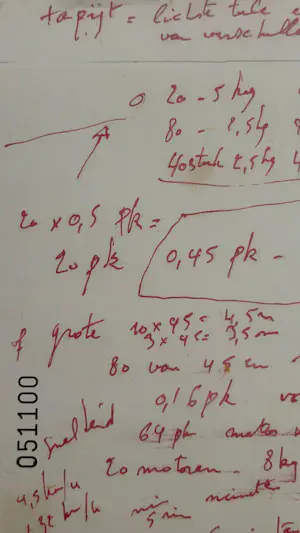 tapijt = lichte
van verschille
0 20 - 5 kg
80 - 2,5 kg
40 stuk 2,5 kg 4
20 x 0,5 pk =
20 pk
0,45 pk -
of grote 10 x 45 = 4,5 m
3 x 45 = 3,5 m
80 van 45 cm
0,16 pk
snelheid
64 pk
20 motoren - 8 kg
4,5 km/u
km/u
min
5 min
051100